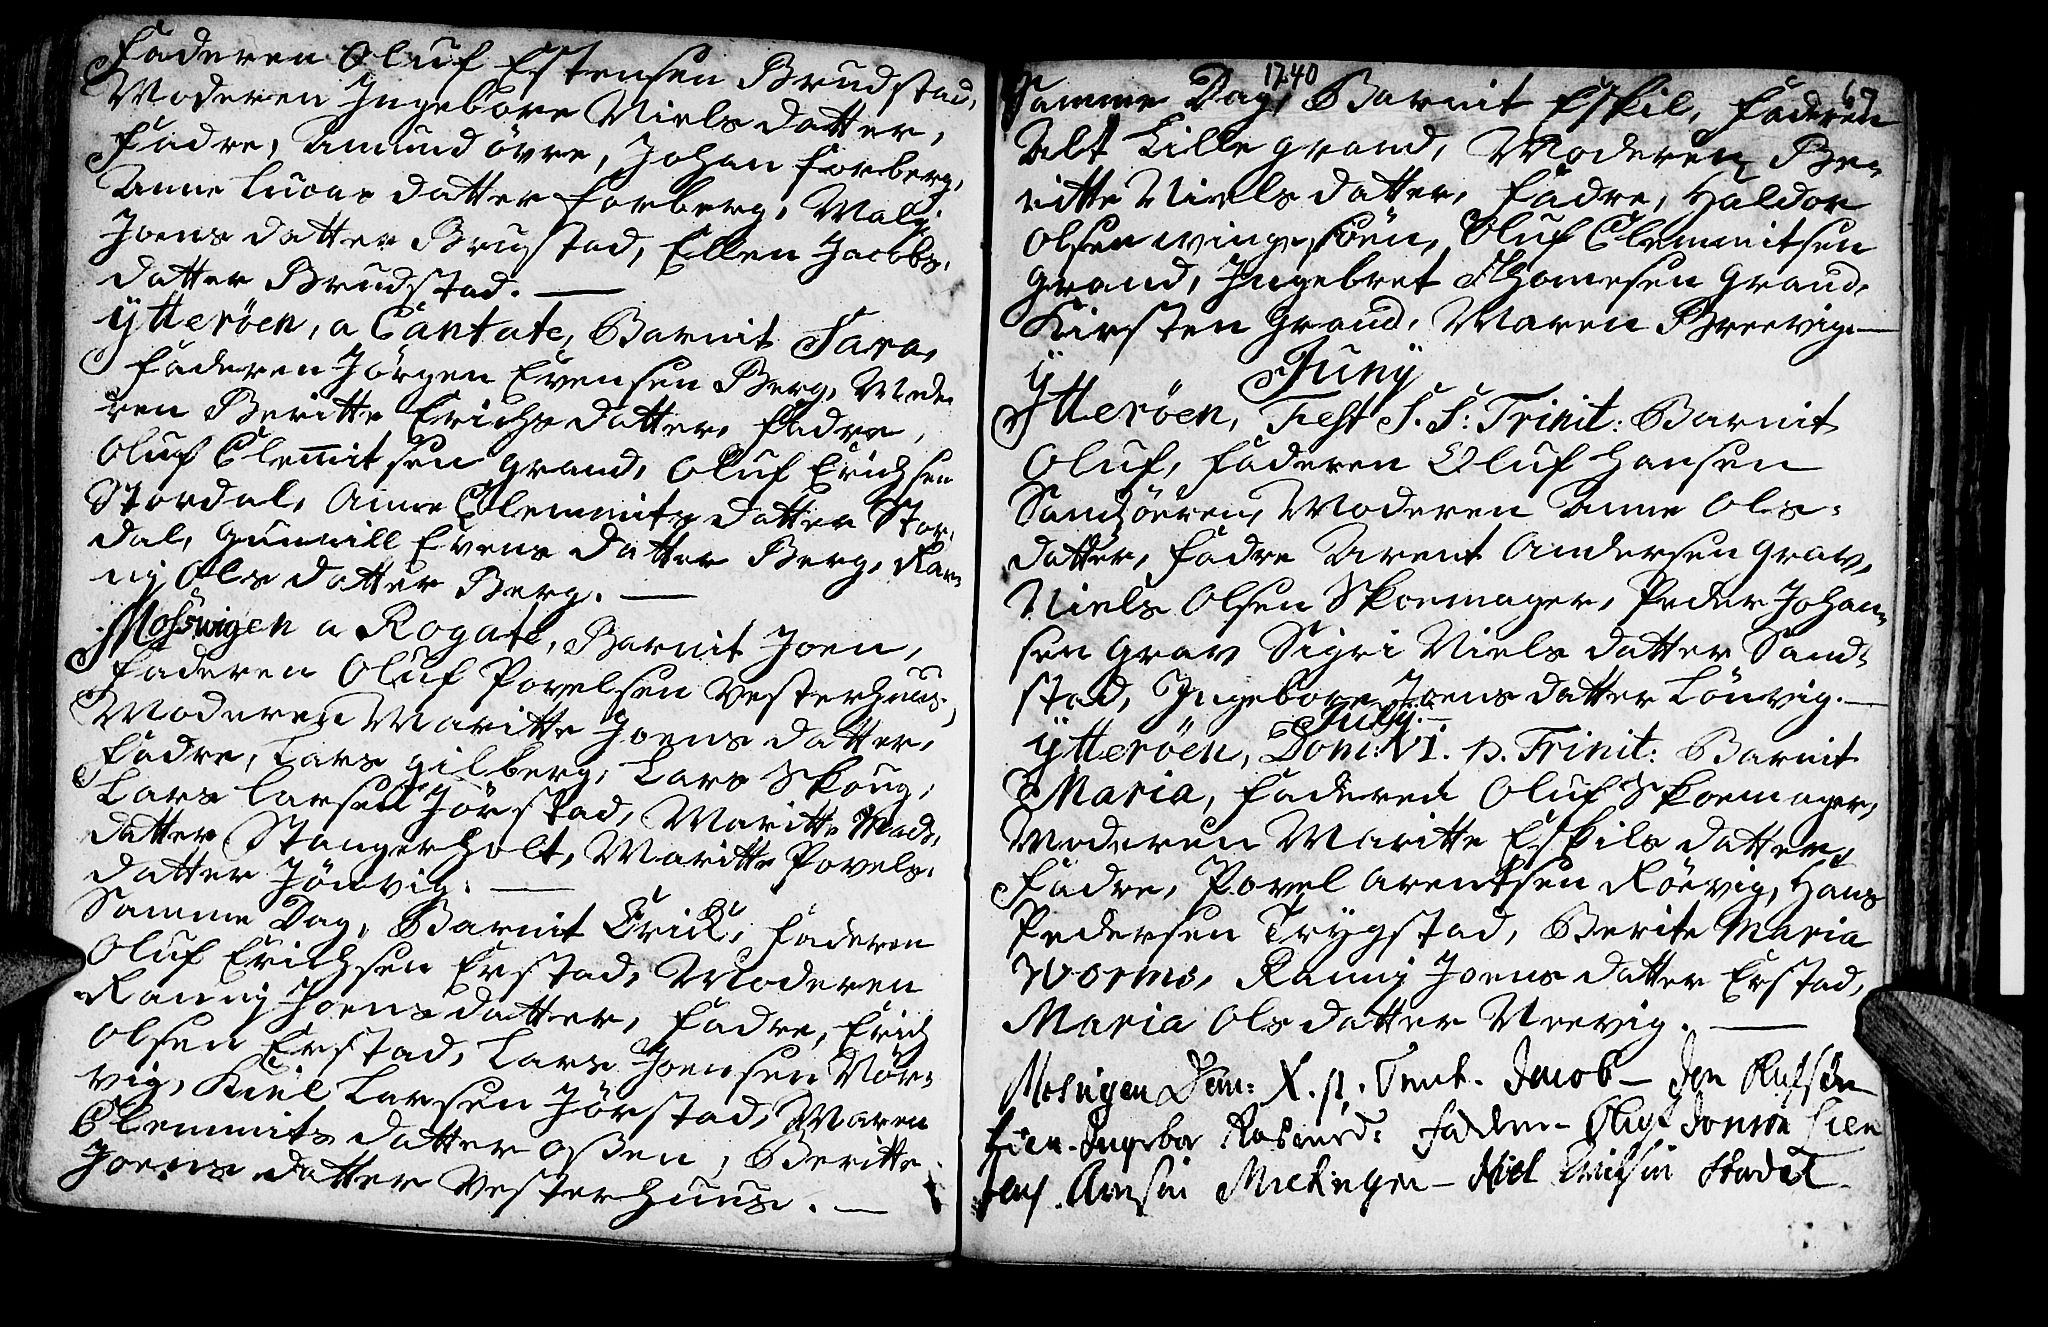 Faderen Oluf Estensen Brudstad,
Moderen Ingebore Niels datter,
Fadre, Amund övre, Johan Forberg,
Anne Lucas datter Forberg, Mali
Joens datter Brustad, Ellen Jacobs
datter Brudstad. —
ytteröen, a Cantate, Barnit Sara,
Faderen Jörgen Evensen Berg, Mode
ren Beritte Erichs datter, Fadre,
Oluf Clemitsen grand, Oluf Erichsen
Stordal, Anne Clemmits datter Stor
dal, Gunnill Evens datter Berg, Ran
nj Ols datter Berg. —
Mossvigen a Rogate, Barnit Joen,
Faderen Oluf Povelsen Vesterhuus,
Moderen Maritte Joens datter,
Fadre, Lars gilberg, Lars Skoug,
Lars Larsen Jörstad, Maritte Mads
datter Stangerholt, Maritte Povels
datter Jönvig. —
Samme Dag, Barnit Erick, Faderen
Oluf Erichsen Erstad, Moderen
Rannj Joens datter, Fadre, Erich
Olsen Erstad, Lars Joensen Nör
vig, Kiel Larsen Jörstad, Maren
Clemmits datter Ossen, Beritte
Joens datter Vesterhuus. —
1740
67
Samme Dag, Barnit Eskil, Faderen
Alt Lille grand, Moderen Be
ritte Niels datter, Fadre, Haldor
Olsen Vinge, Oluf Clemmitsen
grand, Ingebret Thomesen grand,
Kirsten Grand, Maren Breevig. —
Junij
Ytteröen, Fest S. S: Trinit: Barnit
Oluf, Faderen Oluf Hansen
Sandöeren, Moderen Anne Ols
datter, Fadre Arent Andersen grav,
Niels Olsen Skoemager, Peder Johan
sen grav Sigri Niels datter Sand
stad, Ingebore Joens datter Lönvig. —
July.
ytteröen, Dom: VI. p. Trinit: Barnit
Maria, Faderen Oluf Skoemager,
Moderen Maritte Eskils datter,
Fadre, Povel Arentsen Röevig, Hans
Pedersen Trygstad, Berite Maria
Worms, Rannj Joens datter Erstad,
Maria Ols datter Neevig. —
Mosvigen Dom: X. p. Trinit. Jacob — Jon Olufsen
Ingebor Rasmusd: Fadder — Oluf Jonsen
Arnsen — Kiel Erichsen